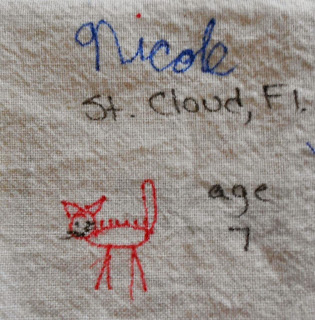 Nicole
St. Cloud, Fl.
age
7